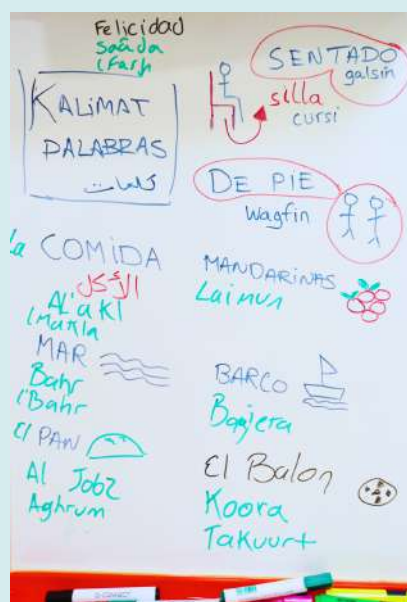 Felicidad
Saâda
lfarḥ
KALIMAT
PALABRAS
كلمات
SENTADO
galsin
silla
cursi
DE PIE
Wagfin
La COMIDA
الأكل
AL'akl
lMakla
MANDARINAS
Laimun
MAR
Bahr
lBahr
BARCO
El PAN
Al Jobz
Aghrum
El Balon
Koora
Takuurt